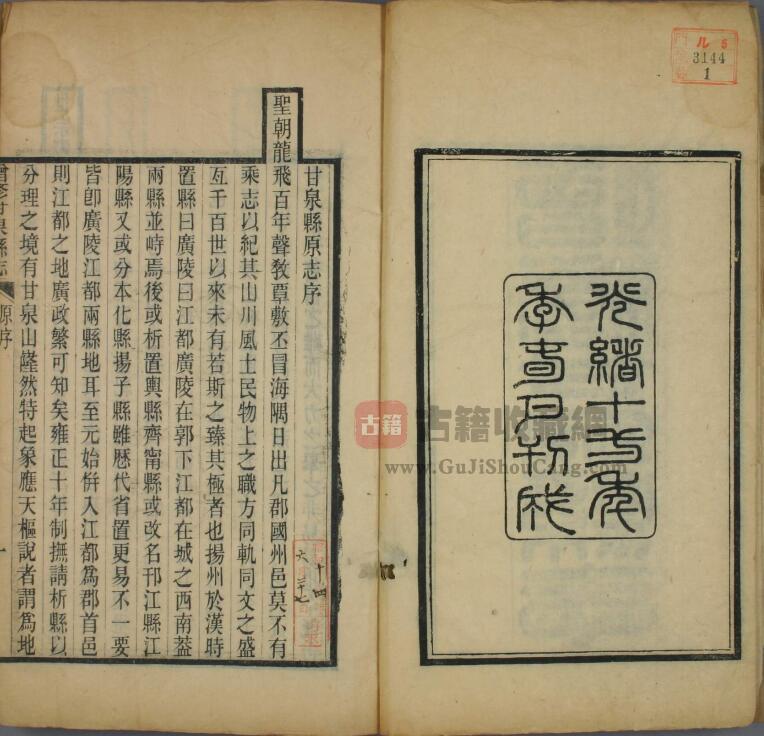 ル5
3144
1
光緒十年
季春月刊成
甘泉縣原志序
聖朝龍飛百年聲敎覃敷丕冒海隅日出凡郡國州邑莫不有
乘志以紀其山川風土民物上之職方同軌同文之盛
亙千百世以來未有若斯之臻其極者也揚州於漢時
置縣曰廣陵曰江都廣陵在郭下江都在城之西南葢
兩縣並峙焉後或析置輿縣齊甯縣或改名邗江縣江
陽縣又或分本化縣揚子縣雖歷代省置更易不一要
皆卽廣陵江都兩縣地耳至元始倂入江都爲郡首邑
則江都之地廣政繁可知矣雍正十年制撫請析縣以
分理之境有甘泉山隆然特起象應天樞說者謂爲地
增修甘泉縣志 原序 一
古籍 古籍收藏網
www.GuJiShouCang.com